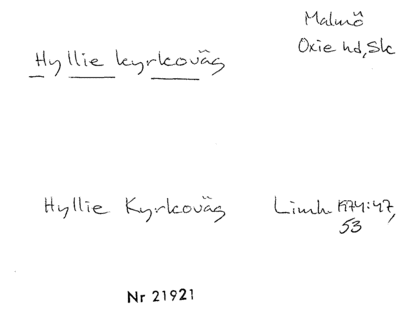 Malmö
Oxie hd, Sk
Hyllie kyrkoväg
Hyllie Kyrkoväg Limh 1974:47,
53
Nr 21921